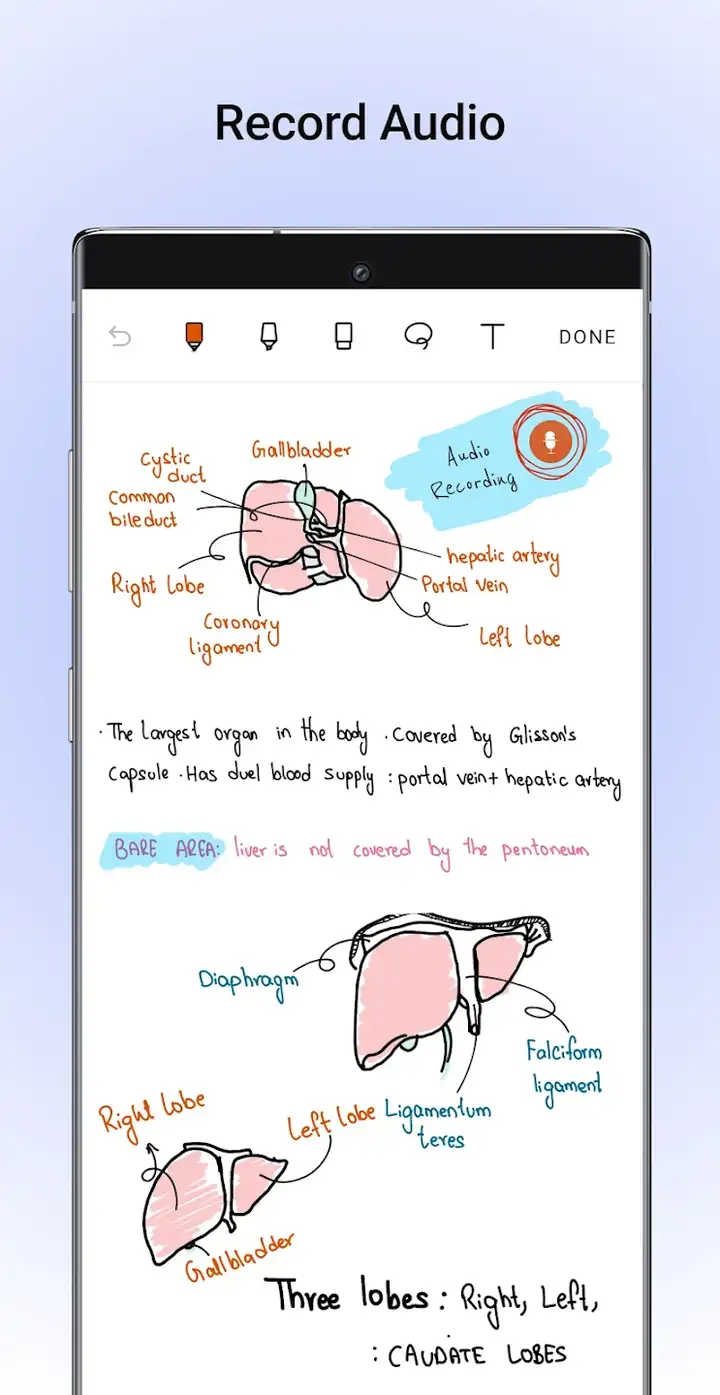 Record Audio
T
DONE
Audio
Recording
Cystic
duct
Gallbladder
Common
bile duct
hepatic artery
Right lobe
Portal vein
Coronary
ligament
Left lobe
· The largest organ in the body · Covered by Glisson's
Capsule · Has duel blood supply : portal vein + hepatic artery
BARE AREA: liver is not covered by the pentoneum
Diaphragm
Falciform
ligament
Right lobe
Left lobe
Ligamentum
teres
Gallbladder
Three lobes : Right, Left,
: CAUDATE LOBES